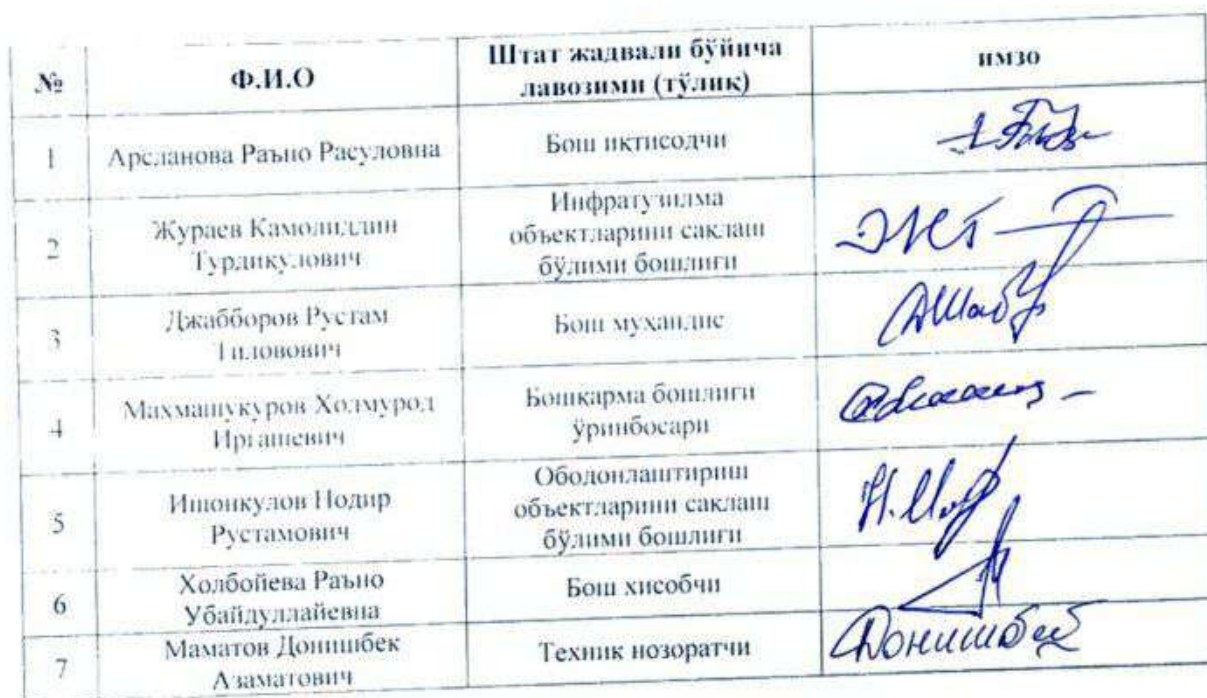 №
Ф.И.О
Штат жадвали бўйича
лавозими (тўлиқ)
имзо
1
Арсланова Раъно Расуловна
Бош иқтисодчи
2
Жураев Камолиддин
Турдикулович
Инфратузилма
объектларини сақлаш
бўлими бошлиғи
3
Джабборов Рустам
Гиловович
Бош муҳандис
4
Махмашукуров Холмурод
Иргашевич
Бошқарма бошлиғи
ўринбосари
5
Ишонкулов Нодир
Рустамович
Ободонлаштириш
объектларини сақлаш
бўлими бошлиғи
6
Холбойева Раъно
Убайдуллайевна
Бош хисобчи
7
Маматов Донишбек
Азаматович
Техник нозоратчи
Донишбек